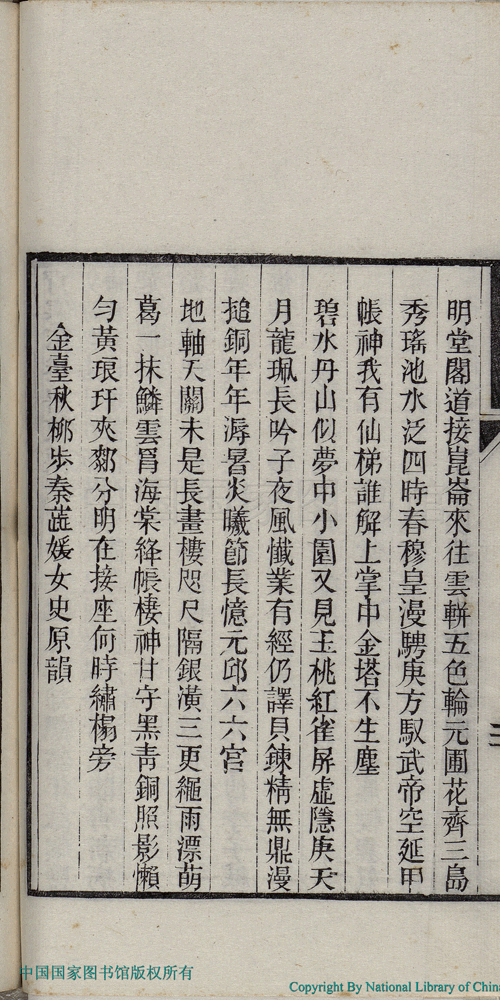 明堂閣道接崑崙來往雲輧五色輪元圃花齊三島
秀瑤池水泛四時春穆皇漫騁庚方馭武帝空延甲
帳神我有仙梯誰解上掌中金塔不生塵
碧水丹山似夢中小園又見玉桃紅雀屏虛隱庚天
月龍珮長吟子夜風懺業有經仍譯貝鍊精無鼎漫
搥銅年年溽暑炎曦節長憶元邱六六宮
地軸天關未是長畫樓咫尺隔銀潢三更䋲雨漂萌
葛一抹鱗雲罥海棠絳帳棲神甘守黑青銅照影懶
勻黃琅玕夾𨞬分明在接座何時繡榻旁
金臺秋柳步秦蕋媛女史原韻
三
中国国家图书馆版权所有
Copyright By National Library of Chin